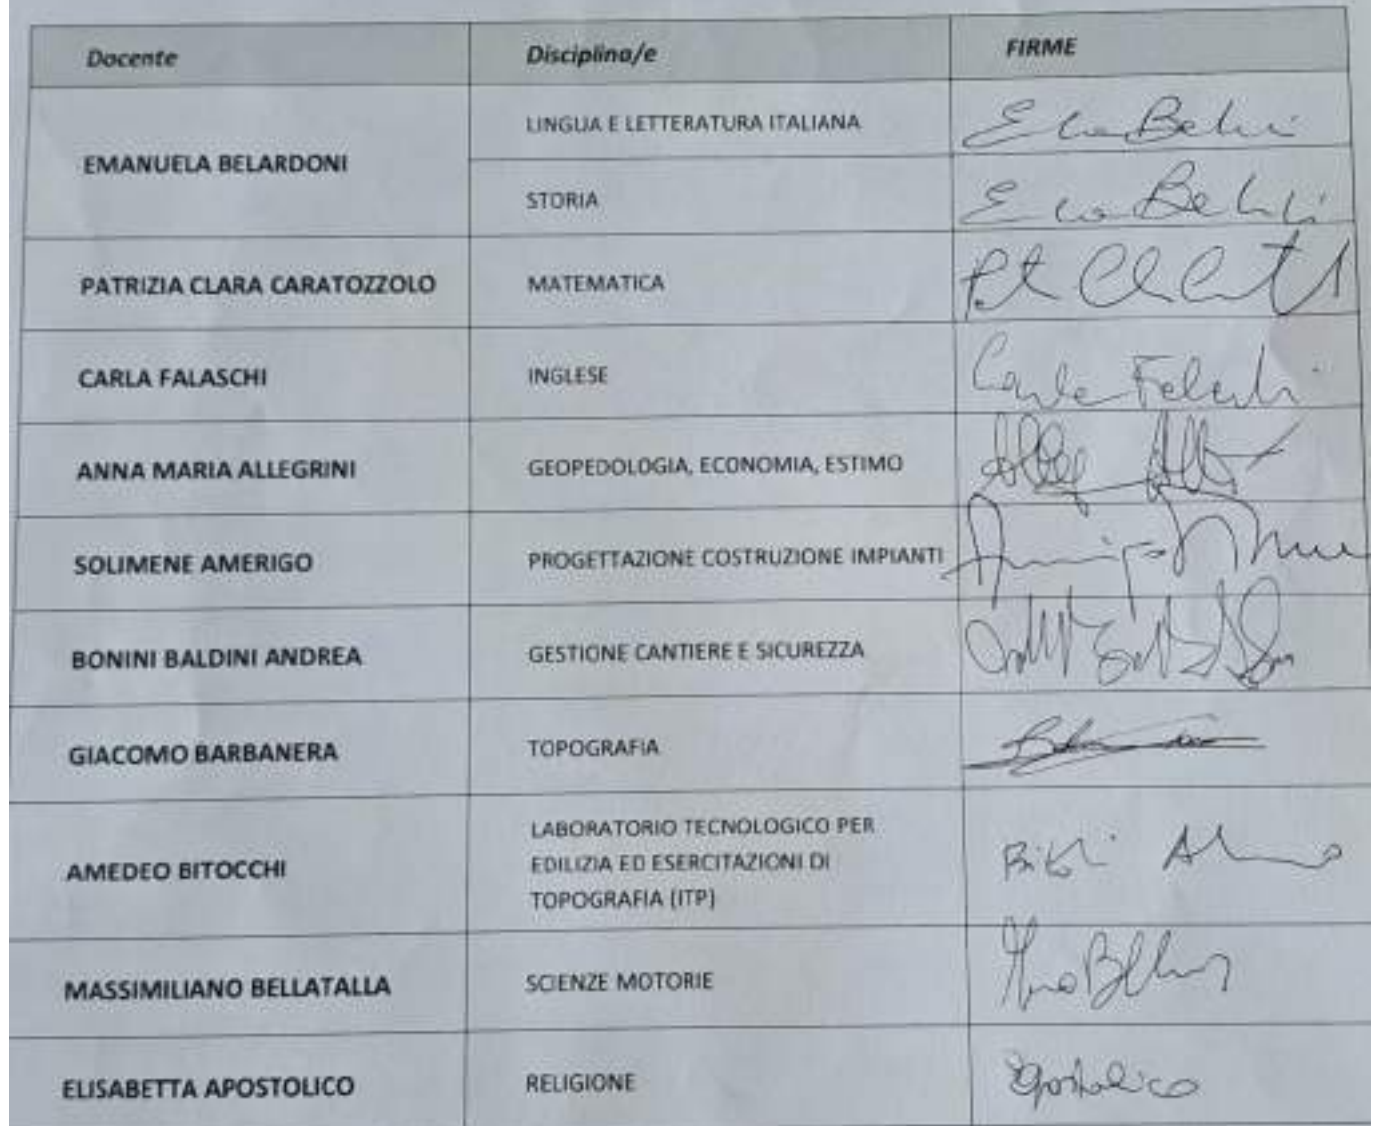 Docente Disciplina/e FIRME
EMANUELA BELARDONI
LINGUA E LETTERATURA ITALIANA
STORIA
PATRIZIA CLARA CARATOZZOLO MATEMATICA
CARLA FALASCHI INGLESE Carla
ANNA MARIA ALLEGRINI GEOPEDOLOGIA, ECONOMIA, ESTIMO
SOLIMENE AMERIGO PROGETTAZIONE COSTRUZIONE IMPIANTI
BONINI BALDINI ANDREA GESTIONE CANTIERE E SICUREZZA
GIACOMO BARBANERA TOPOGRAFIA
AMEDEO BITOCCHI
LABORATORIO TECNOLOGICO PER
EDILIZIA ED ESERCITAZIONI DI
TOPOGRAFIA (ITP)
MASSIMILIANO BELLATALLA SCIENZE MOTORIE
ELISABETTA APOSTOLICO RELIGIONE Apostolico